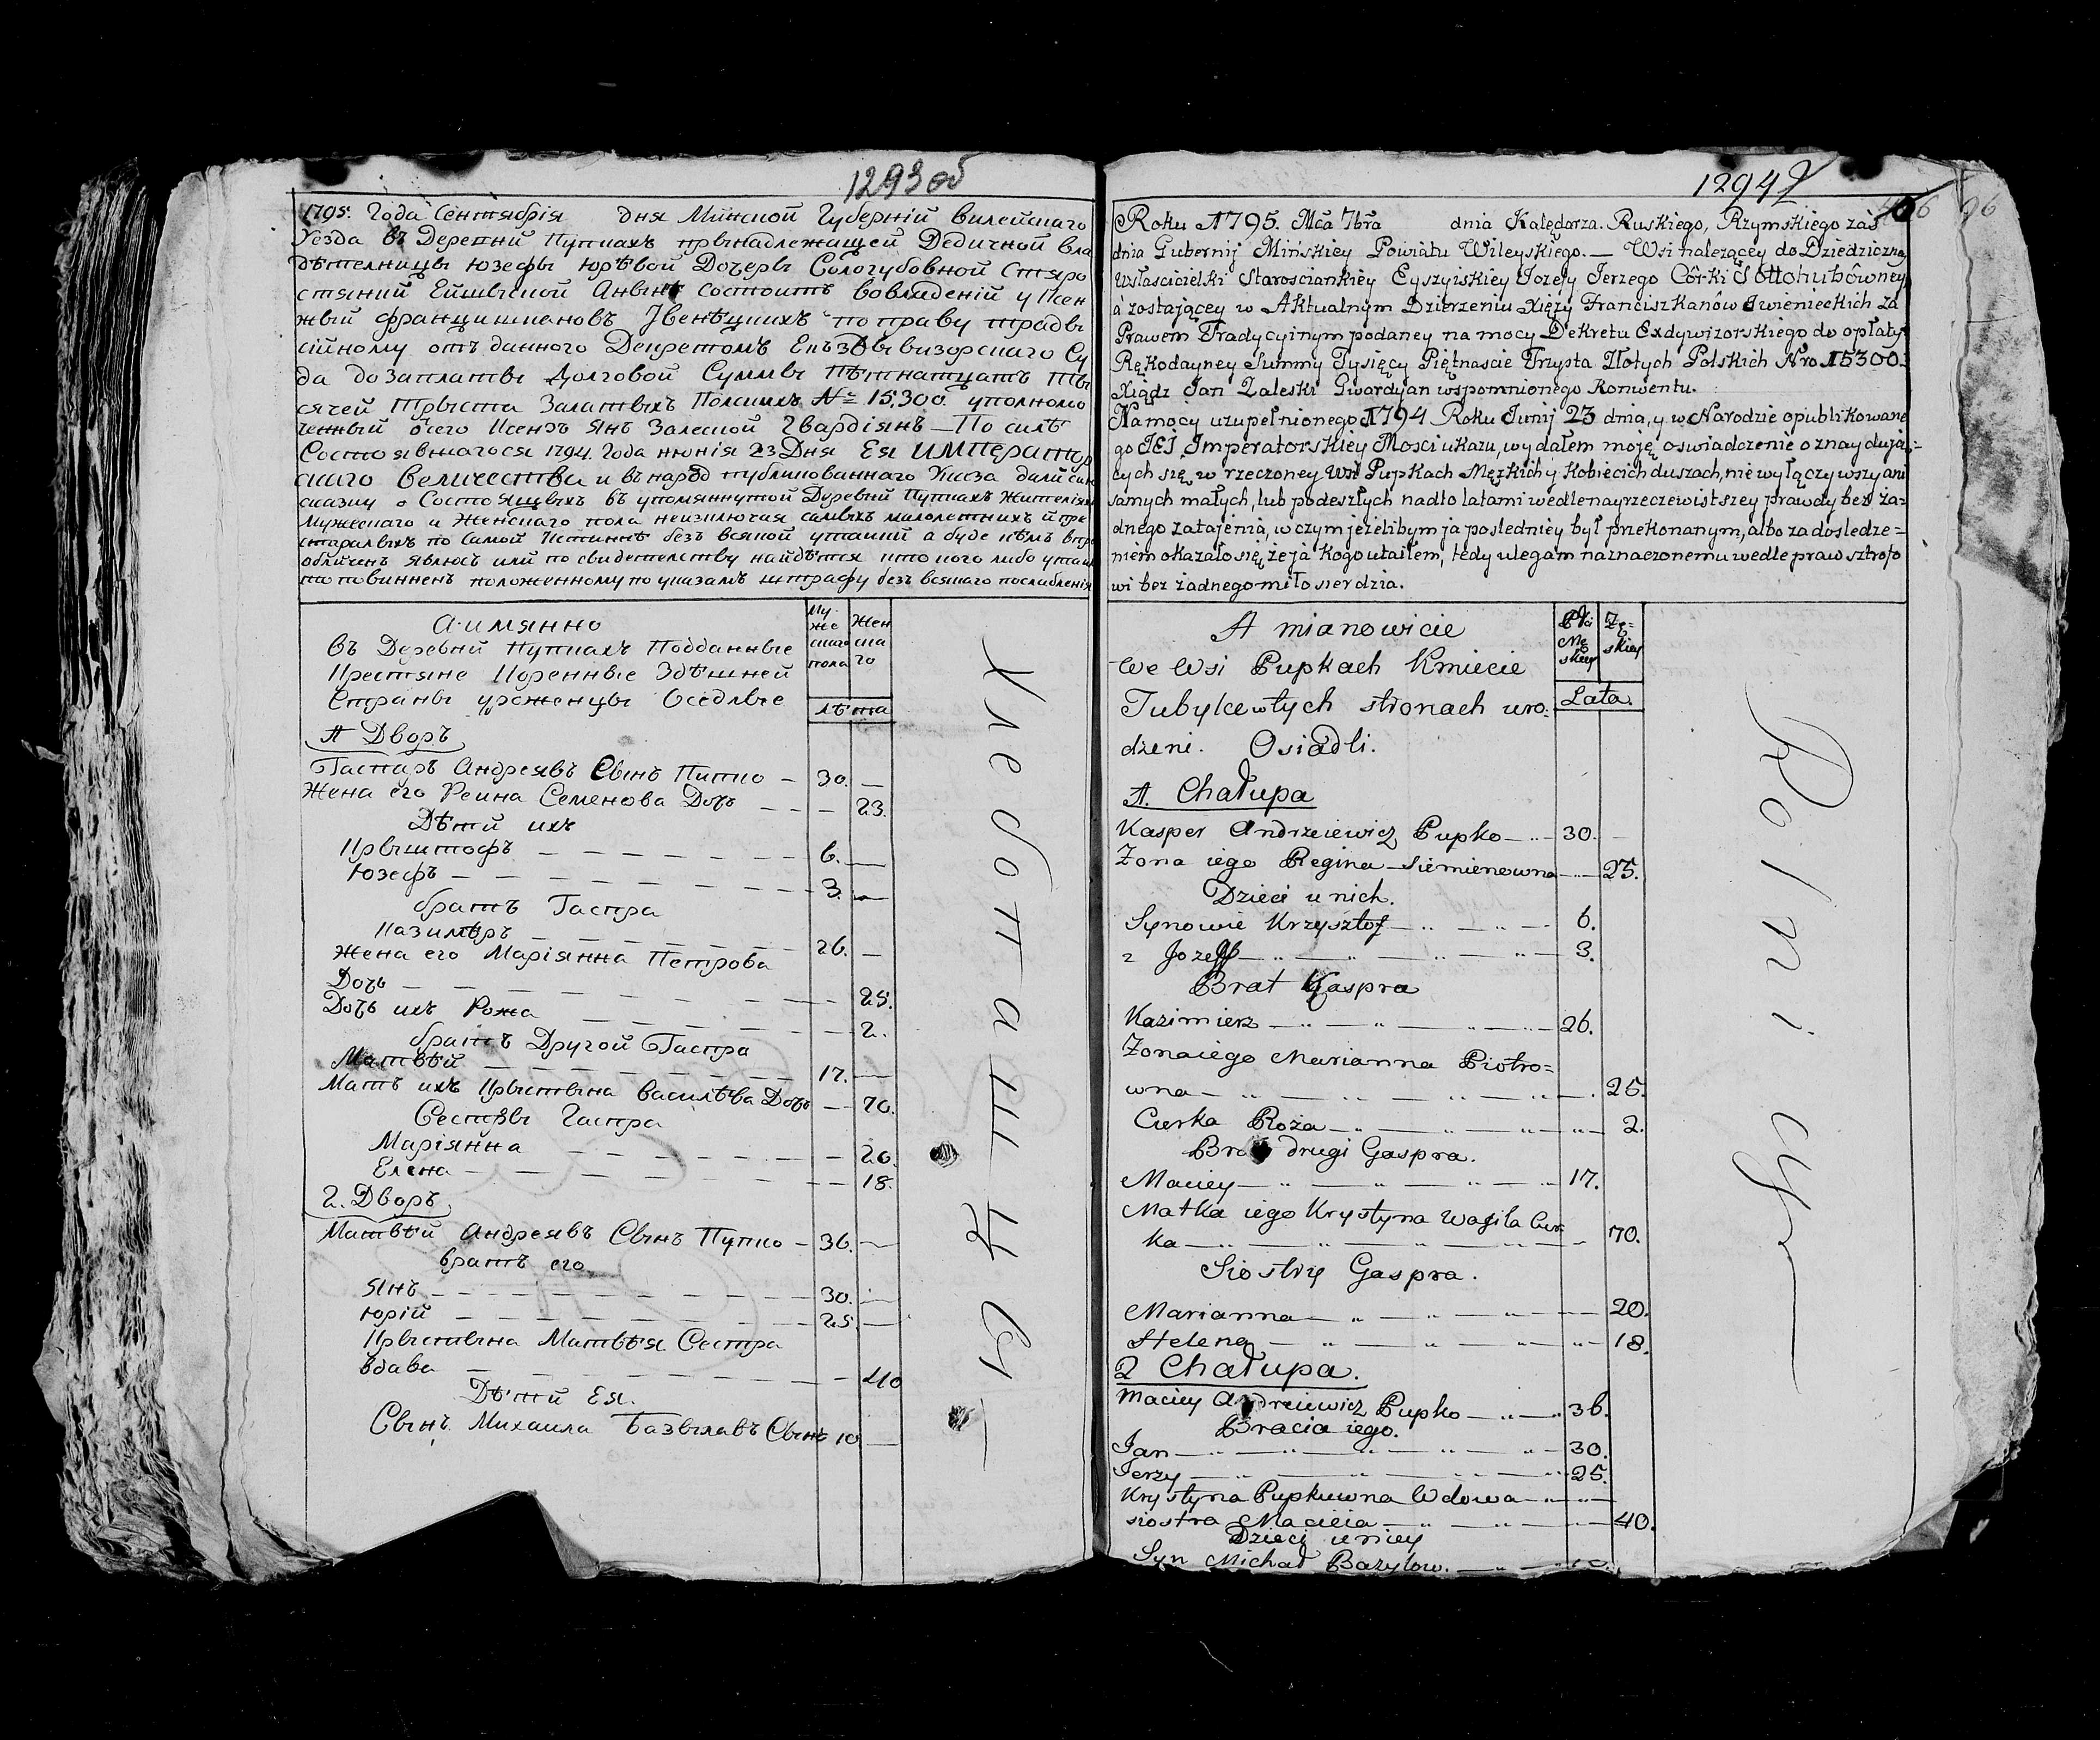 1293 об
1795. Года Сентября дня Минской Губерніи вилейскаго
Уезда въ Деревни Пупкахъ прынадлежащей Дедичной вла
дѣтелницы Юзефы Юрѣвой Дочеры Сологубовной Старо
стянки Ейшыской состоитъ вовладеніи у Ксен
жый францишкановъ Ивенѣцкихъ по праву традыі
сійному отъ данного Декретомъ Екъздывизорскаго Су
да дозаплаты Долговой Суммы пѣтнатцать ты
сячей трыста Залатыхъ Полскихъ № 15,300 уполномо
ченный Ксенъзъ Янъ Залеской Гвардіянъ — По силѣ
Состоявшагося 1794. Года июнія 23 Дня Ея ИМПЕРатор
скаго Величества и въ народ публикованнаго Указа дали сию
сказку о Состоящыхъ въ упомянутой Деревни Пупкахъ жителяхъ
Мужескаго и Женскаго пола неизключая самыхъ малолетнихъ и пре
старалыхъ по Самой Истиннѣ безъ всякой утайки а буде
обличенъ явлюсь или по свидетелству найдѣтся што кого либо утаил
то повиненъ положенному по указамъ штрафу безъ всякаго послабленія
А имянно
въ Деревни Пупкахъ Подданные
Крестяне Коренные Здѣшней
Страны уроженцы Оседлые
Му-
же
скаго
пола
Жен
ска
го
лѣта
1 Дворъ
Гаспаръ Андреявъ Сынъ Пупко — 30. —
Жена его Реина Семенова Дочь — — — 23.
Дѣти ихъ
Крыштофъ — — — 6. —
Юзефъ — — — 3. —
братъ Гаспра
Казимѣръ — — — 26. —
жена его Маріянна Петрова
Дочь — — — 25.
Дочь ихъ Рожа — — — 2.
братъ Другой Гаспра
Матвѣй — — — 17. —
Мать ихъ Крыстына Василѣва Дочь — 70.
Сестры Гаспра
Маріянна — — — 20.
Елена — — — 18.
2. Дворъ
Матвѣй Андреявъ Сынъ Пупко — 36. —
братъ его
Янъ — — — 30. —
Юрій — — — 25. —
Крыстына Матвѣя Сестра
вдава — — — 40
Дѣти Ея.
Сынъ Михаила Базылявъ Сынъ 10 —
Хлебопашцы
1294
406 96
Roku 1795. Mca 7bra dnia Kalędarza Ruskiego, Rzymskiego zaś
dnia Gubernij Mińskiey Powiatu Wileyskiego. — Wsi należącey do Dziedziczney
Właścicielki Starościankiey Eyszyskiey Jozefy Jerzego Córki Sołłohubówney
a zostającey w Aktualnym Dzierżeniu Xięży Franciszkanów Iwienieckich za
Prawem Tradycyinym podaney na mocy Dekretu Exdywizorskiego do opłaty
Rękodayney Summy Tysięcy Piętnaście Trzysta Złotych Polskich Nro 15300.
Xiądz Jan Zaleski Gwardyan wspomnionego Konwentu.
Na mocy uzupełnionego 1794 Roku Junij 23 dnia, y w Narodzie opublikowane
go JEJ Imperatorskiey Mości ukazu, wydałem moję oświadczenie o znaydują=
cych się, w rzeczoney Wsi Pupkach Męzkich y Kobiecich duszach, nie wyłączywszy ani
samych małych, lub podeszłych nadto latami wedle nayrzeczewistszey prawdy bez ża=
dnego zatajenia, w czym jeżelibym ja pośledniey był przekonanym, albo za dośledze=
niem okazało się, że ja kogo utaiłem, tedy ulegam naznaczonemu wedle praw sztrofo
wi bez żadnego miłosierdzia.
A mianowicie
we Wsi Pupkach Kmiecie
Tubylce w tych stronach uro=
dzeni. Osiadli.
Płci
Mę
skiey
Żę=
skiey
Lata.
1. Chałupa
Kasper Andrzeiewicz Pupko — 30. —
Żona iego Regina Siemienowna — 25.
Dzieci u nich.
Synowie Krzysztof — 6.
2 Jozeff — 3.
Brat Kaspra
Kazimierz — 26.
Żona iego Marianna Piotro=
wna — 25.
Curka Róża — 2.
Brat drugi Gaspra.
Maciey — 17.
Matka iego Krystyna Wasila Cur
ka — 70.
Siostry Gaspra.
Marianna — 20.
Helena — 18.
2 Chałupa.
Maciey Andrzeiewicz Pupko — 36.
Bracia iego.
Jan — 30.
Jerzy — 25.
Krystyna Pupkuwna Wdowa —
siostra Macieia — 40.
Dzieci u niey
Syn Michał Bazylow. — 10.
Rolnicy